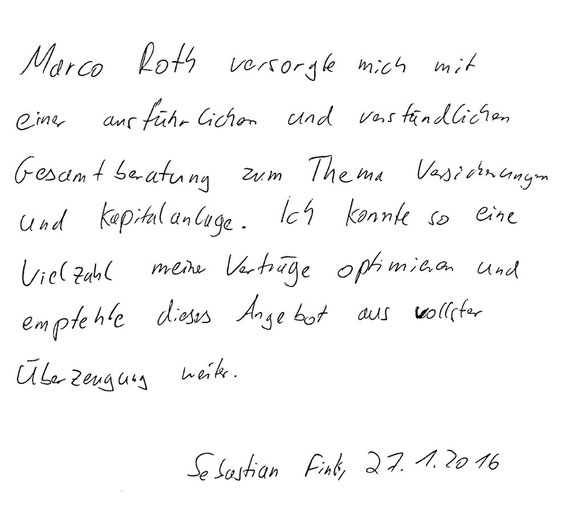 Marco Roth versorgte mich mit
einer ausführlichen und verständlichen
Gesamtberatung zum Thema Versicherungen
und Kapitalanlage. Ich konnte so eine
Vielzahl meiner Verträge optimieren und
empfehle dieses Angebot aus vollster
Überzeugung weiter.
Sebastian Fink, 27.1.2016